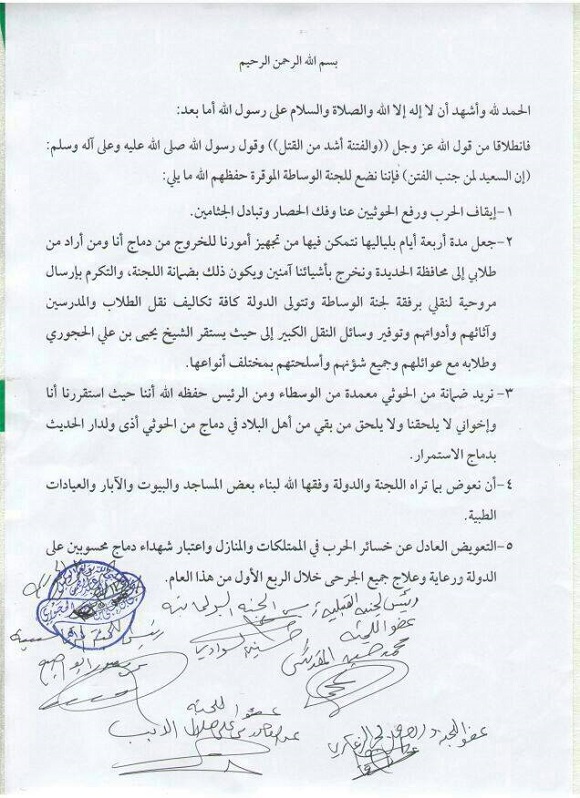 بسم الله الرحمن الرحيم
الحمد لله وأشهد أن لا إله إلا الله والصلاة والسلام على رسول الله أما بعد:
فانطلاقا من قول الله عز وجل ((والفتنة أشد من القتل)) وقول رسول الله صلى الله عليه وعلى آله وسلم:
(إن السعيد لمن جنب الفتن) فإننا نضع للجنة الوساطة الموقرة حفظهم الله ما يلي:
١-إيقاف الحرب ورفع الحوثيين عنا وفك الحصار وتبادل الجثامين.
٢-جعل مدة أربعة أيام بلياليها نتمكن فيها من تجهيز أمورنا للخروج من دماج أنا ومن أراد من
طلابي إلى محافظة الحديدة ونخرج بأشيائنا آمنين ويكون ذلك بضمانة اللجنة، والتكرم بإرسال
مروحية لنقلي برفقة لجنة الوساطة وتتولى الدولة كافة تكاليف نقل الطلاب والمدرسين
وآثائهم وأدواتهم وتوفير وسائل النقل الكبير إلى حيث يستقر الشيخ يحيى بن علي الحجوري
وطلابه مع عوائلهم وجميع شؤنهم وأسلحتهم بمختلف أنواعها.
٣- نريد ضمانة من الحوثي معمدة من الوسطاء ومن الرئيس حفظه الله أننا حيث استقررنا أنا
وإخواني لا يلحقنا ولا يلحق من بقي من أهل البلاد في دماج من الحوثي أذى ولدار الحديث
بدماج الاستمرار.
٤-أن نعوض بما تراه اللجنة والدولة وفقها الله لبناء بعض المساجد والبيوت والآبار والعيادات
الطبية.
٥-التعويض العادل عن خسائر الحرب في الممتلكات والمنازل واعتبار شهداء دماج محسوبين على
الدولة ورعاية وعلاج جميع الجرحى خلال الربع الأول من هذا العام.
رئيس لجنة القبلية
عضو اللجنة
عضو اللجنة
عضو اللجنة